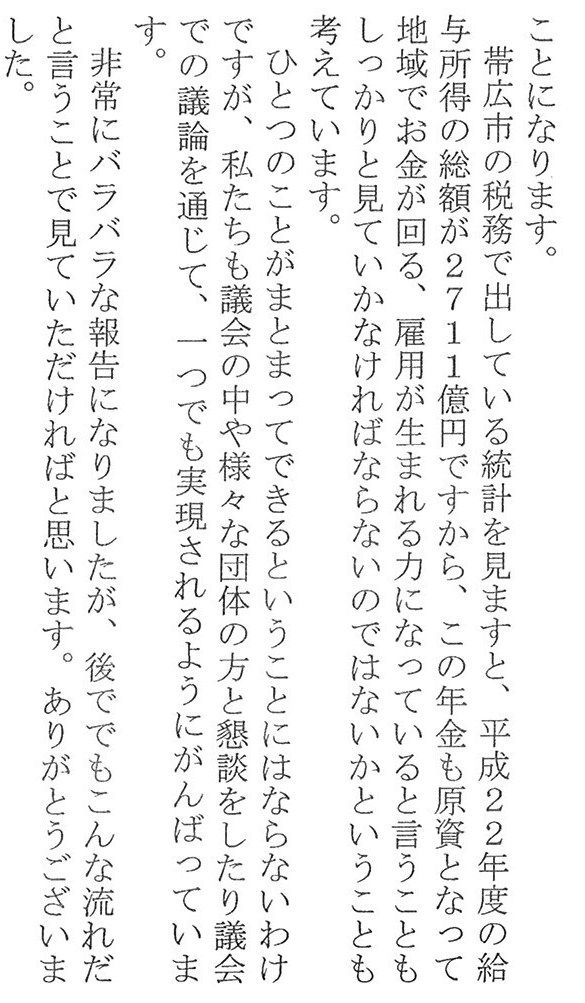 ことになります。
帯広市の税務で出している統計を見ますと、平成２２年度の給
与所得の総額が２７１１億円ですから、この年金も原資となって
地域でお金が回る、雇用が生まれる力になっていると言うことも
しっかりと見ていかなければならないのではないかということも
考えています。
ひとつのことがまとまってできるということにはならないわけ
ですが、私たちも議会の中や様々な団体の方と懇談をしたり議会
での議論を通じて、一つでも実現されるようにがんばっていま
す。
非常にバラバラな報告になりましたが、後ででもこんな流れだ
と言うことで見ていただければと思います。ありがとうございま
した。